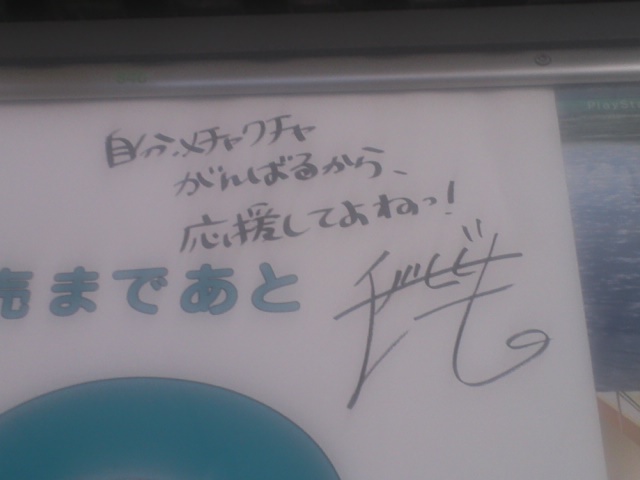 PlaySt
自分メチャクチャ
がんばるから、
応援してよねっ!
売まであと